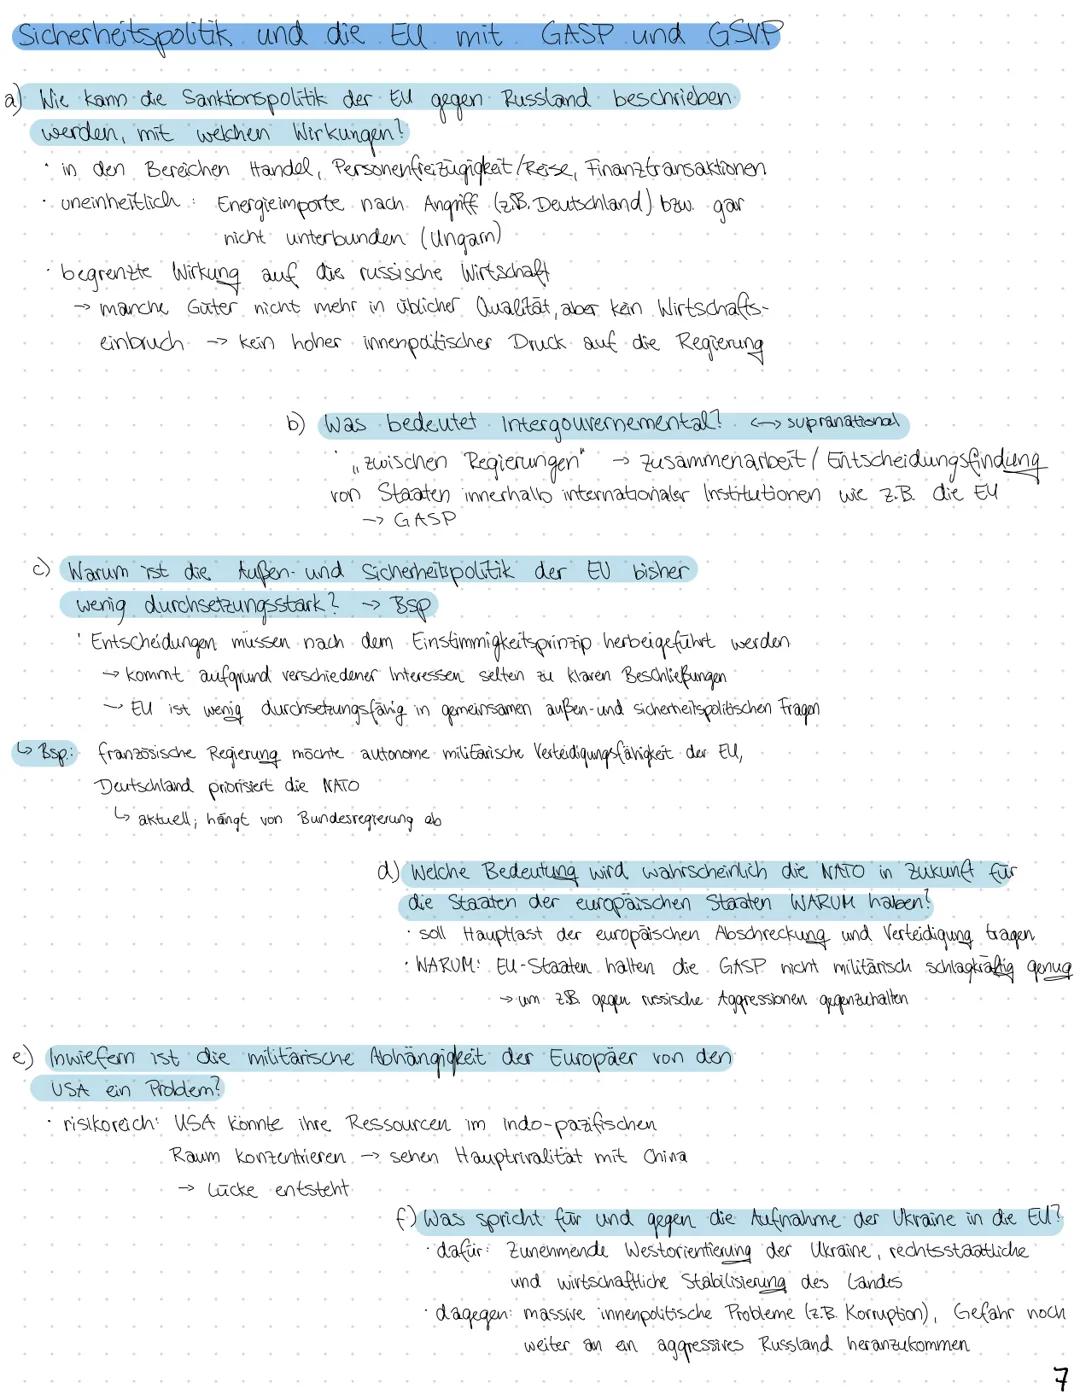 Sicherheitspolitik und die EU mit GASP und GSVP
a) Wie kann die Sanktionspolitik der EU gegen Russland beschrieben
werden, mit welchen Wirkungen?
· in den Bereichen Handel, Personenfreizügigkeit/Reise, Finanztransaktionen
· uneinheitlich: Energieimporte nach Angriff (z.B. Deutschland) bzw. gar
nicht unterbunden (Ungarn)
· begrenzte Wirkung auf die russische Wirtschaft
→ manche Güter nicht mehr in üblicher Qualität, aber kein Wirtschafts-
einbruch → kein hoher innenpolitischer Druck auf die Regierung
b) Was bedeutet Intergouvernemental? ↔ supranational
· „zwischen Regierungen" → Zusammenarbeit / Entscheidungsfindung
von Staaten innerhalb internationaler Institutionen wie z.B. die EU
→ GASP
c) Warum ist die Außen- und Sicherheitspolitik der EU bisher
wenig durchsetzungsstark? → Bsp
· Entscheidungen müssen nach dem Einstimmigkeitsprinzip herbeigeführt werden
→ kommt aufgrund verschiedener Interessen selten zu klaren Beschließungen
→ EU ist wenig durchsetzungsfähig in gemeinsamen außen-und sicherheitspolitischen Fragen
↳ Bsp.: französische Regierung möchte autonome militärische Verteidigungsfähigkeit der EU,
Deutschland priorisiert die NATO
↳ aktuell; hängt von Bundesregierung ab
d) Welche Bedeutung wird wahrscheinlich die NATO in Zukunft für
die Staaten der europäischen Staaten WARUM haben?
· soll Hauptlast der europäischen Abschreckung und Verteidigung tragen
· WARUM: EU-Staaten halten die GASP nicht militärisch schlagkräftig genug
→ um z.B. gegen russische Aggressionen gegenzuhalten
e) Inwiefern ist die militärische Abhängigkeit der Europäer von den
USA ein Problem?
· risikoreich: USA könnte ihre Ressourcen im indo-pazifischen
Raum konzentrieren → sehen Hauptrivalität mit China
→ Lücke entsteht
f) Was spricht für und gegen die Aufnahme der Ukraine in die EU?
· dafür: Zunehmende Westorientierung der Ukraine, rechtsstaatliche
und wirtschaftliche Stabilisierung des Landes
· dagegen: massive innenpolitische Probleme (z.B. Korruption), Gefahr noch
weiter an ein aggressives Russland heranzukommen
7